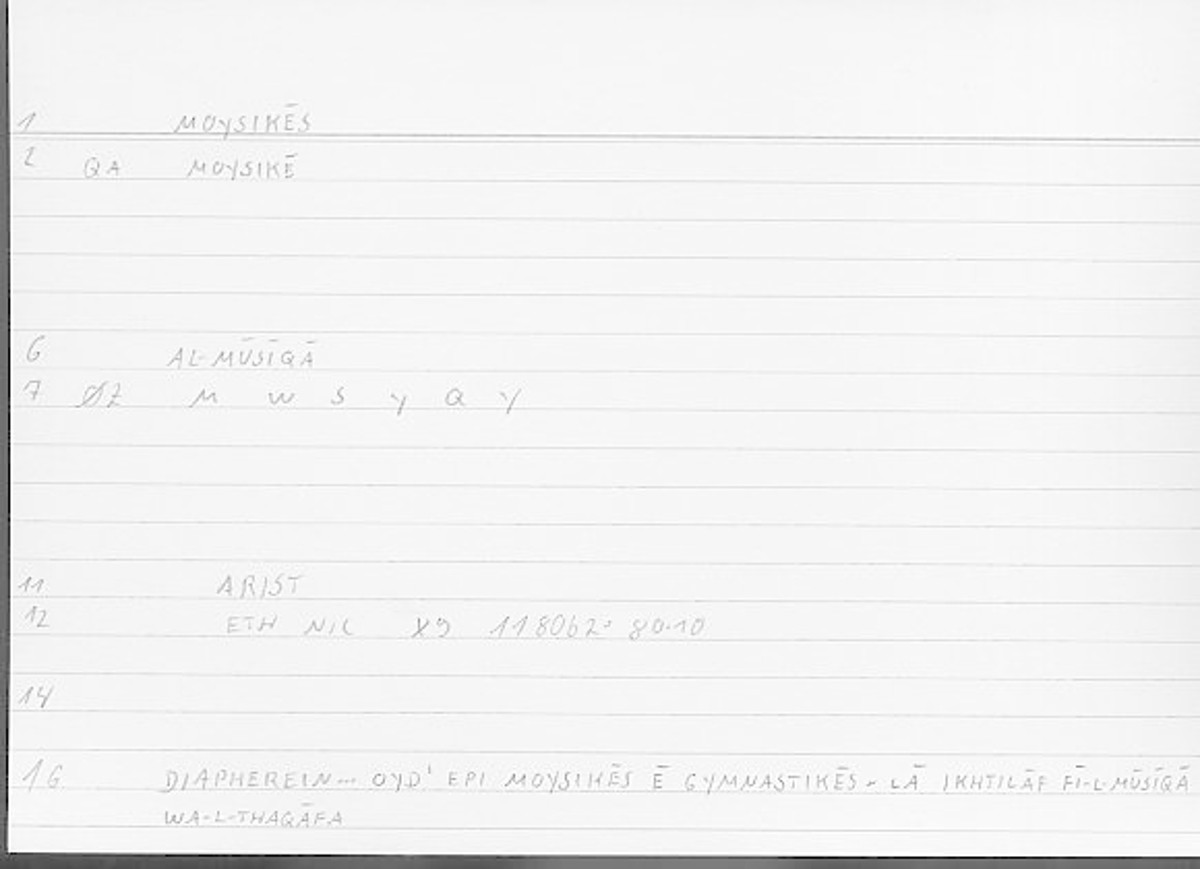 1 MOYSIKĒS
2 QA MOYSIKĒ
6 AL-MŪSĪQĀ
7 ØZ M W S Y Q Y
11 ARIST
12 ETH NIC X9 1180b2: 80.10
14
16 DIAPHEREIN... OYD' EPI MOYSIKĒS Ē GYMNASTIKĒS - LĀ IKHTILĀF FĪ-L-MŪSĪQĀ
WA-L-THAQĀFA